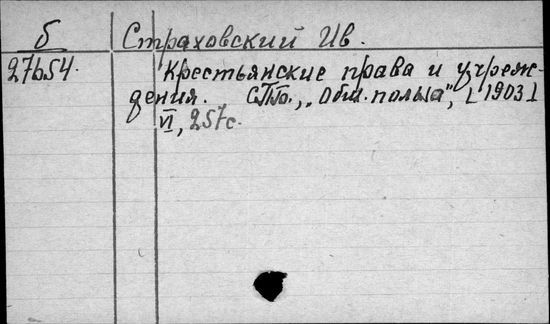 б
Страховский Ив.
27654.
Крестьянские права и учреж-
дения. СПб., „Общ. польза", [1903]
VI, 257с.